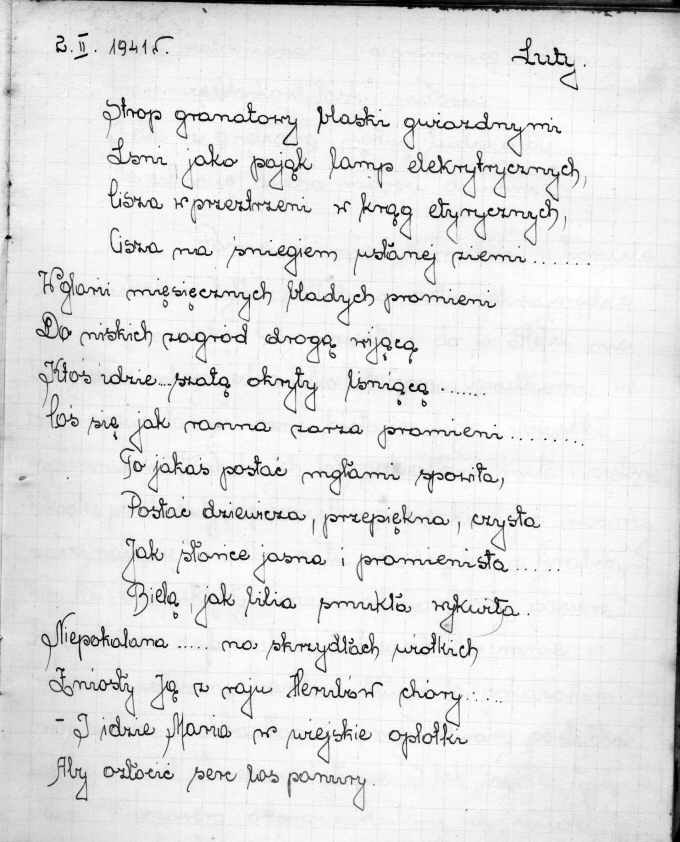 2. II. 1941 r.
Luty.
Strop granatowy blaski gwiazdnymi
Lśni jako pająk lamp elekrytrycznych,
Cisza w przeztrzeni w krąg etyrycznych,
Cisza na śniegiem usłanej ziemi.......
W glorii mięsięcznych bladych promieni
Do niskich zagród drogą wijącą
Ktoś idzie... szatą okryty lśniącą.......
Coś się jak ranna zorza promieni.........
To jakaś postać mgłami spowita,
Postać dziewicza, przepiękna, czysta
Jak słońce jasna i promienista......
Bielą, jak lilia smukła wykwita.
Niepokalana ..... na skrzydłach wiotkich
Zniosły Ją z raju Herubów chóry.....
- I idzie Maria w wiejskie opłotki
Aby ozłocić serc los ponury.